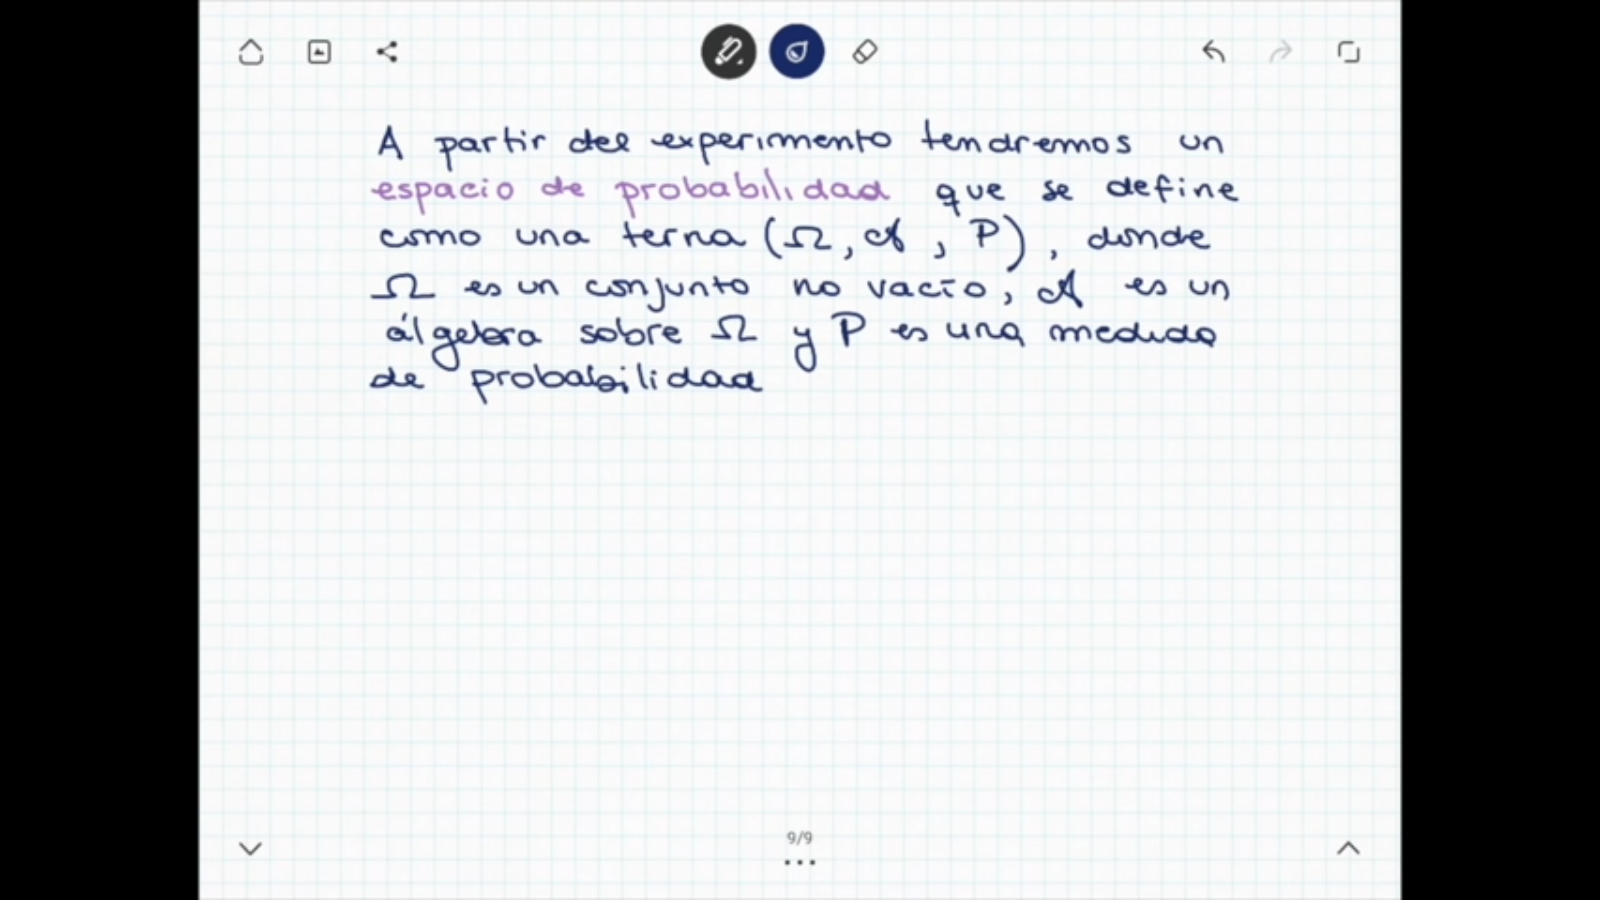 A partir del experimento tendremos un
espacio de probabilidad que se define
como una terna (Ω, 𝒜, P), donde
Ω es un conjunto no vacío, 𝒜 es un
álgebra sobre Ω y P es una medida
de probabilidad
9/9